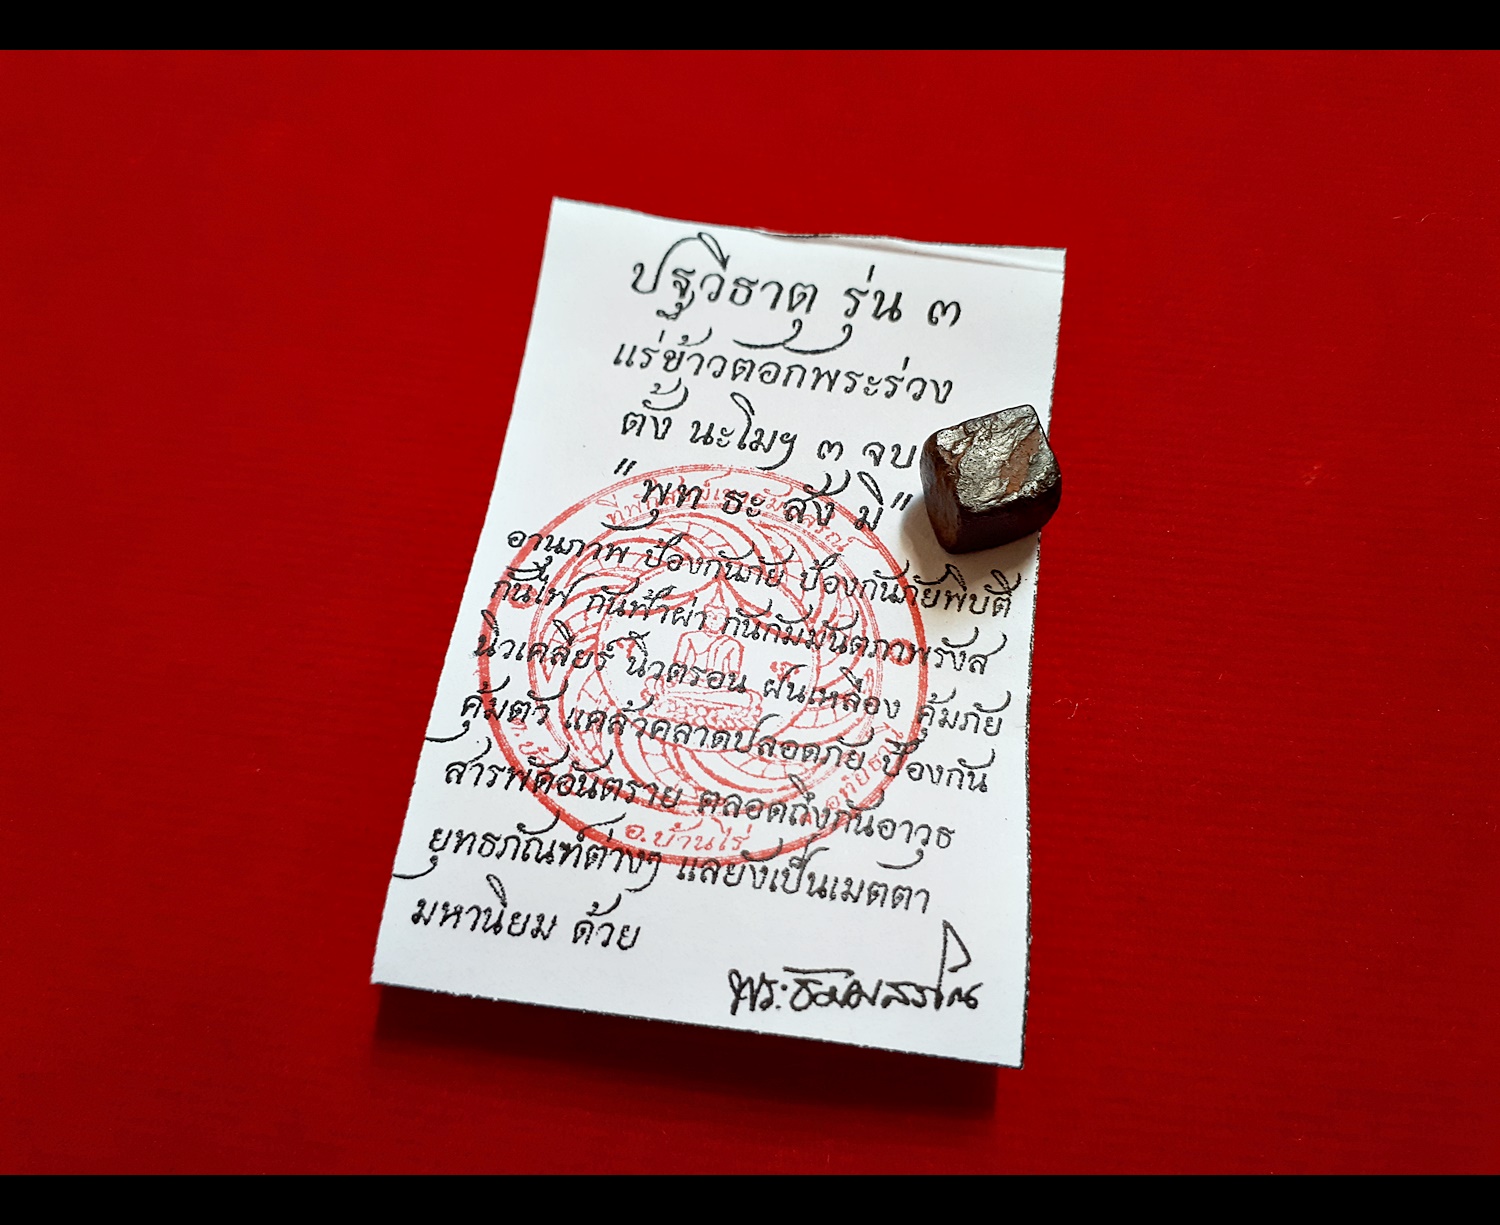 ปฐวีธาตุ รุ่น ๓
แร่ข้าวตอกพระร่วง
ตั้ง นะโมฯ ๓ จบ
"พุท ธะ สัง มิ"
อานุภาพ ป้องกันภัย ป้องกันภัยพิบัติ
กันไฟ กันฟ้าผ่า กันกัมมันตภาพรังส
นิวเคลียร์ นิวตรอน ฝนเหลือง คุ้มภัย
คุ้มตัว แคล้วคลาดปลอดภัย ป้องกัน
สารพัดอันตราย ตลอดถึงกันอาวุธ
ยุทธภัณฑ์ต่างๆ แลยังเป็นเมตตา
มหานิยม ด้วย
พระ
อ.บ้านไร่
อุทัยธานี